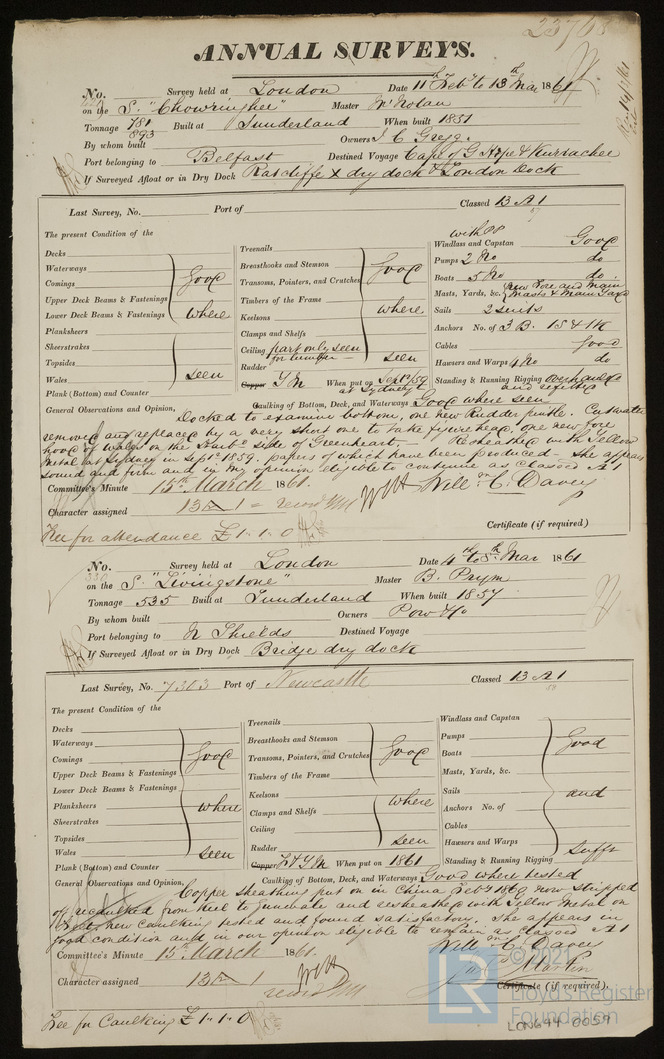 23768
ANNUAL SURVEYS.
No. Survey held at London Date 11th Feby to 13th Mar 1861
on the S. "Chowringhee" Master Mc Nolan
Tonnage 781 893 Built at Sunderland When built 1851
By whom built Owners J C Gregg.
Port belonging to Belfast Destined Voyage Cape of G Hope & Kurrachee
If Surveyed Afloat or in Dry Dock Ratcliffe X dry dock & London Dock
Last Survey, No. Port of Classed 13 A 1
The present Condition of the
Decks
Waterways
Comings
Upper Deck Beams & Fastenings
Lower Deck Beams & Fastenings
Planksheers
Sheerstrakes
Topsides
Wales
Plank (Bottom) and Counter
Good
where
seen
Treenails
Breasthooks and Stemson
Transoms, Pointers, and Crutches
Timbers of the Frame
Keelsons
Clamps and Shelfs
Ceiling part only seen
for lumber
Rudder
Copper Y M When put on Septr/59
at Sydney
Good
where
seen
Windlass and Capstan Good
Pumps 2 No do
Boats 5 No do.
Masts, Yards, &c. New Fore and Main
Masts & Main Yard
Sails 2 suits
Anchors No. of 3 B. 1 S & 1 K
Cables Good
Hawsers and Warps 4 No do
Standing & Running Rigging overhauled
and refitted
Caulking of Bottom, Deck, and Waterways Good where seen
General Observations and Opinion, Docked to examine bottom, one new Rudder pintle. Cutwater
removed and replaced by a very short one to take figurehead, one new fore
hood of wales on the Starbd side of Greenheart. — Resheathed with Yellow
Metal at Sydney in Septr 1859. papers of which have been produced — She appears
sound and firm and in my opinion eligible to continue as classed A 1
Committee's Minute 15th March 1861. Willm C. Davey
Character assigned 13 A 1
Certificate (if required)
Fee for attendance £1.1.0
No. Survey held at London Date 4th to 8th Mar 1861
on the S. "Livingstone" Master B. Prym
Tonnage 535 Built at Sunderland When built 1857
By whom built Owners Pow & Co
Port belonging to N Shields Destined Voyage
If Surveyed Afloat or in Dry Dock Bridge dry dock
Last Survey, No. 7303 Port of Newcastle Classed 13 A 1
The present Condition of the
Decks
Waterways
Comings
Upper Deck Beams & Fastenings
Lower Deck Beams & Fastenings
Planksheers
Sheerstrakes
Topsides
Wales
Plank (Bottom) and Counter
Good
where
seen
Treenails
Breasthooks and Stemson
Transoms, Pointers, and Crutches
Timbers of the Frame
Keelsons
Clamps and Shelfs
Ceiling
Rudder
Copper Y M When put on 1861
Good
where
seen
Windlass and Capstan
Pumps
Boats
Masts, Yards, &c.
Sails
Anchors No. of
Cables
Hawsers and Warps
Standing & Running Rigging
Good
and
Sufft
Caulking of Bottom, Deck, and Waterways Good where tested
General Observations and Opinion, Copper sheathing put on in China now stripped
off recaulked from keel to gunwale and resheathed with Yellow Metal on
new caulking tested and found satisfactory. She appears in
good condition and in our opinion eligible to remain as classed A 1
Committee's Minute 15th March 1861. Willm C. Davey
Martin
Character assigned 13 A 1
Certificate (if required).
Fee for Caulking £1.1.0
LR
© 2021
Lloyd's Register
Foundation
LON644-0059